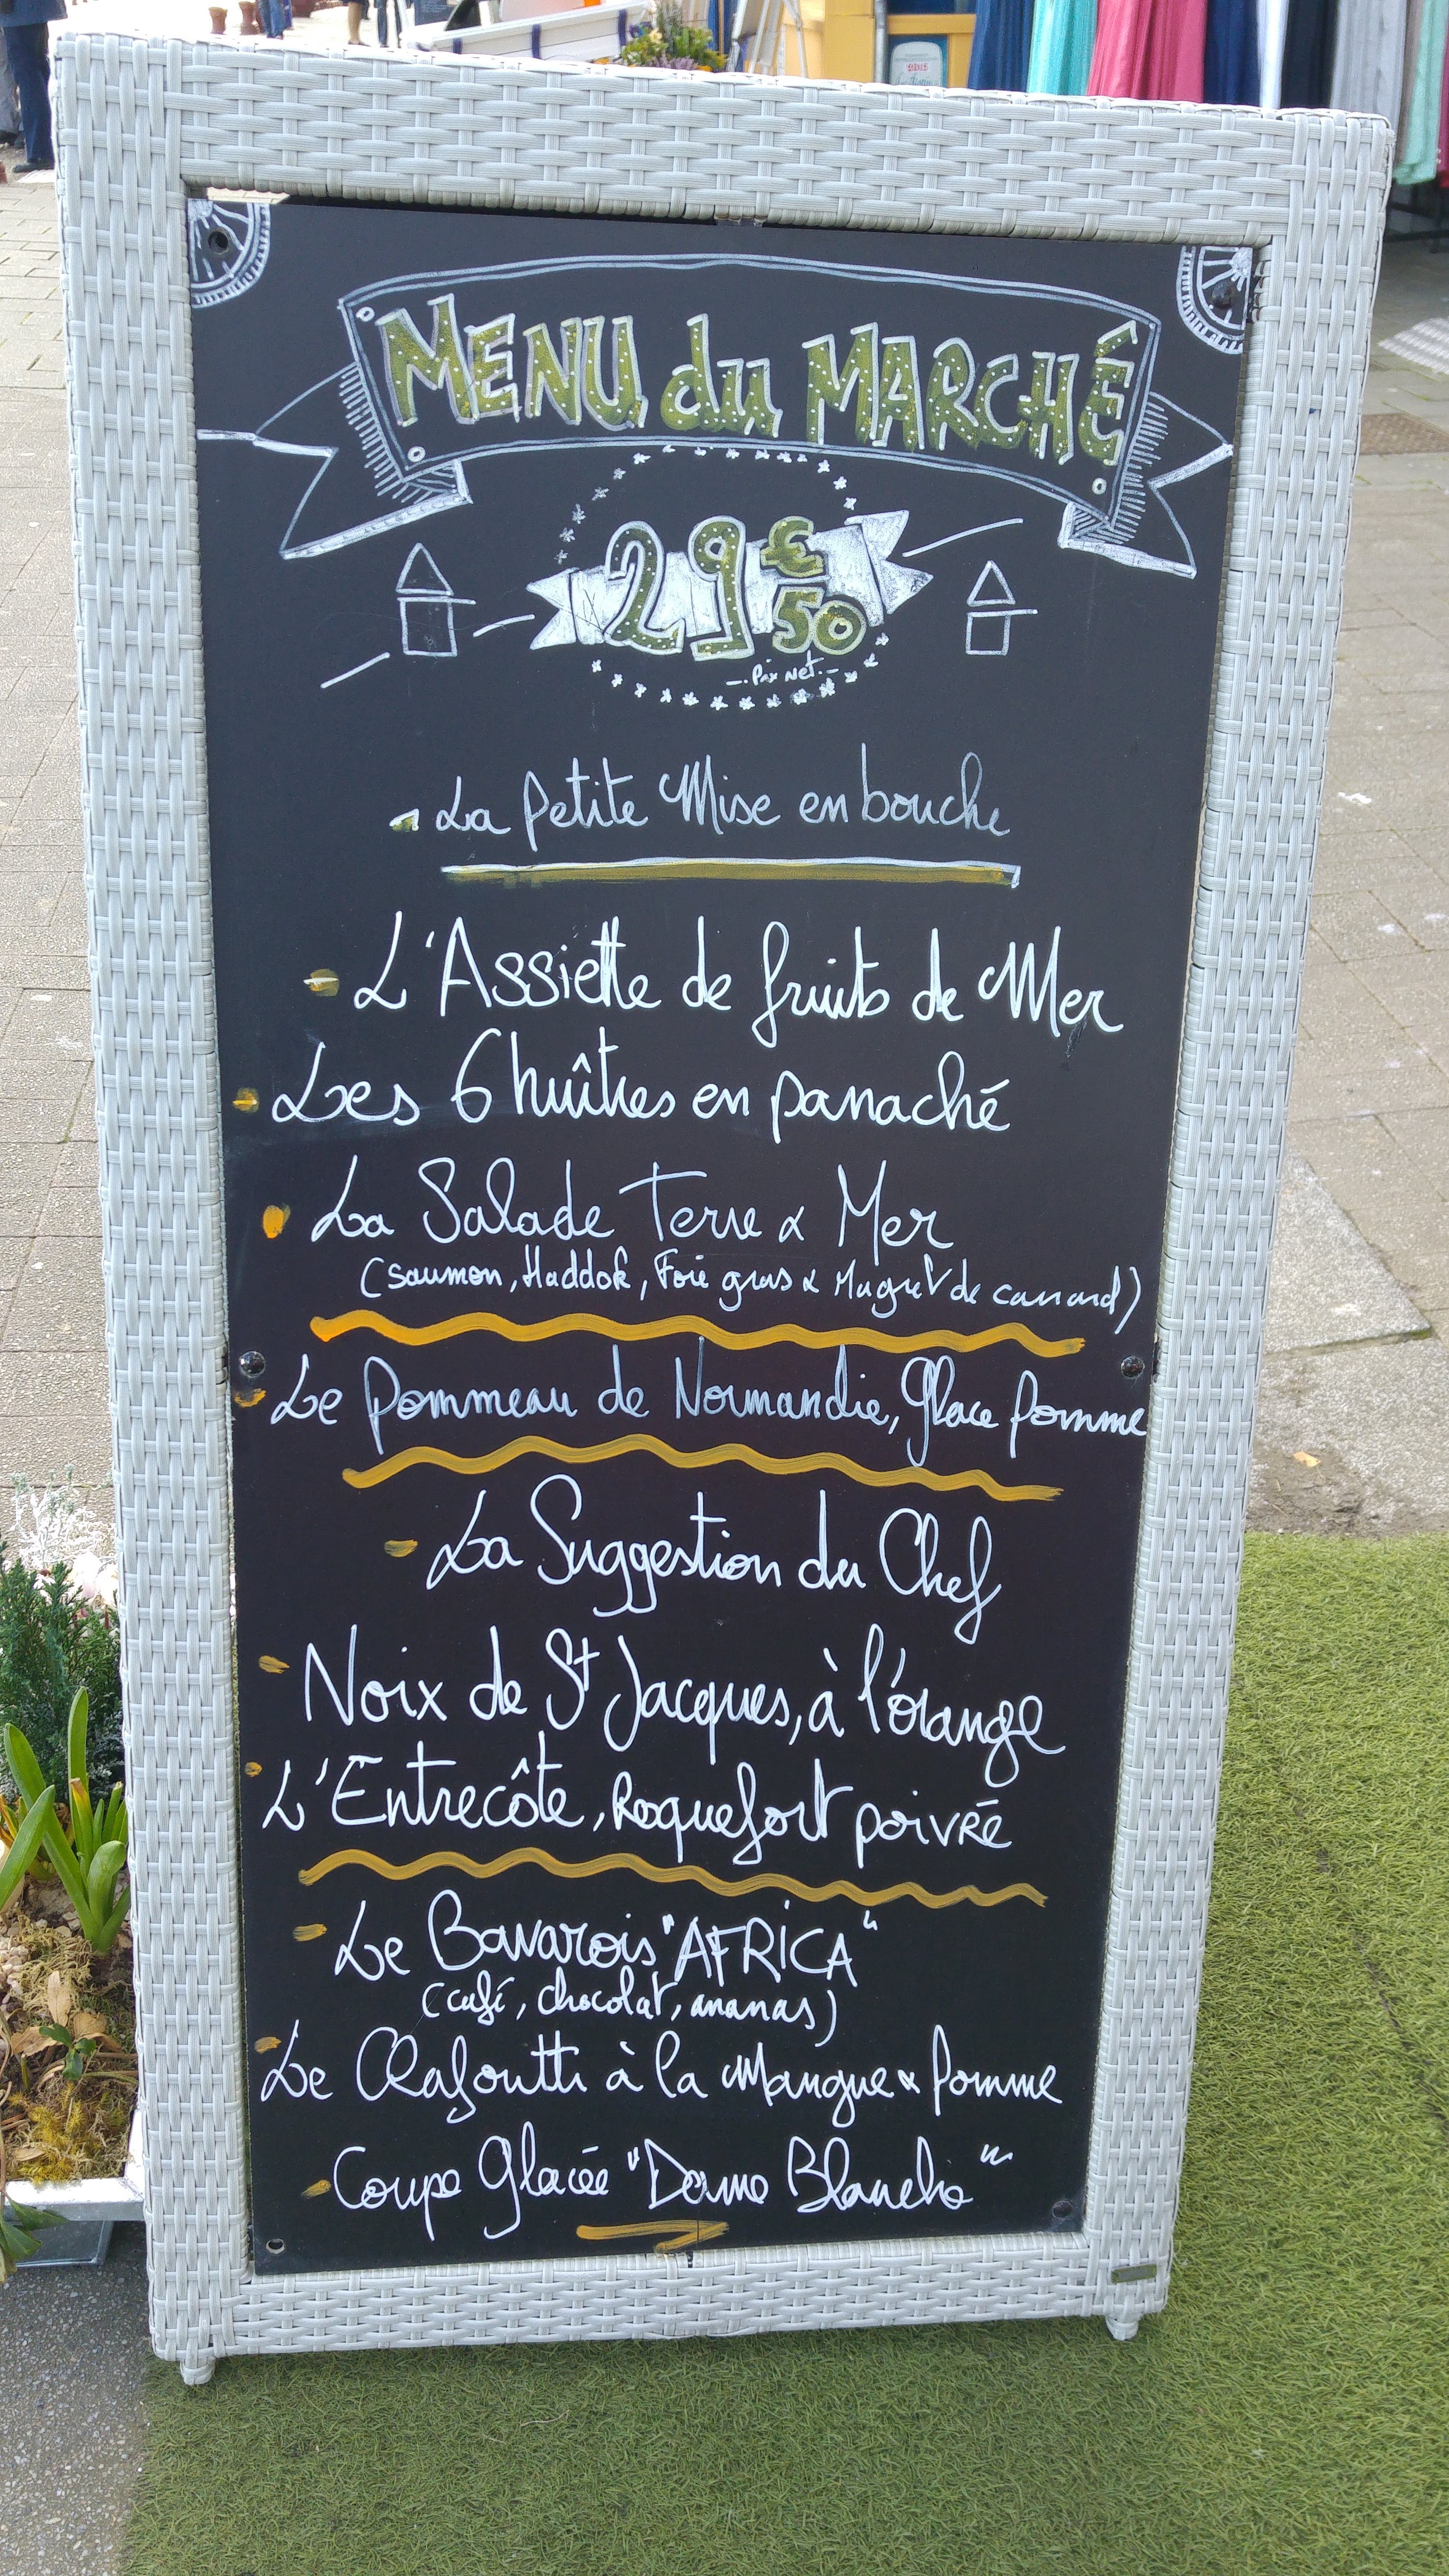 MENU du MARCHÉ
29€50
-. Prix Net.-
La petite Mise en bouche
L'Assiette de fruits de Mer
Les 6 huîtres en panaché
La Salade Terre & Mer
(Saumon, Haddok, Foie gras & Magret de canard)
Le Pommeau de Normandie, glace pomme
La Suggestion du Chef
Noix de St Jacques, à l'orange
L'Entrecôte, Roquefort poivré
Le Bavarois "AFRICA"
(café, chocolat, ananas)
Le Clafoutti à la Mangue & pomme
Coupe Glacée "Dame Blanche"